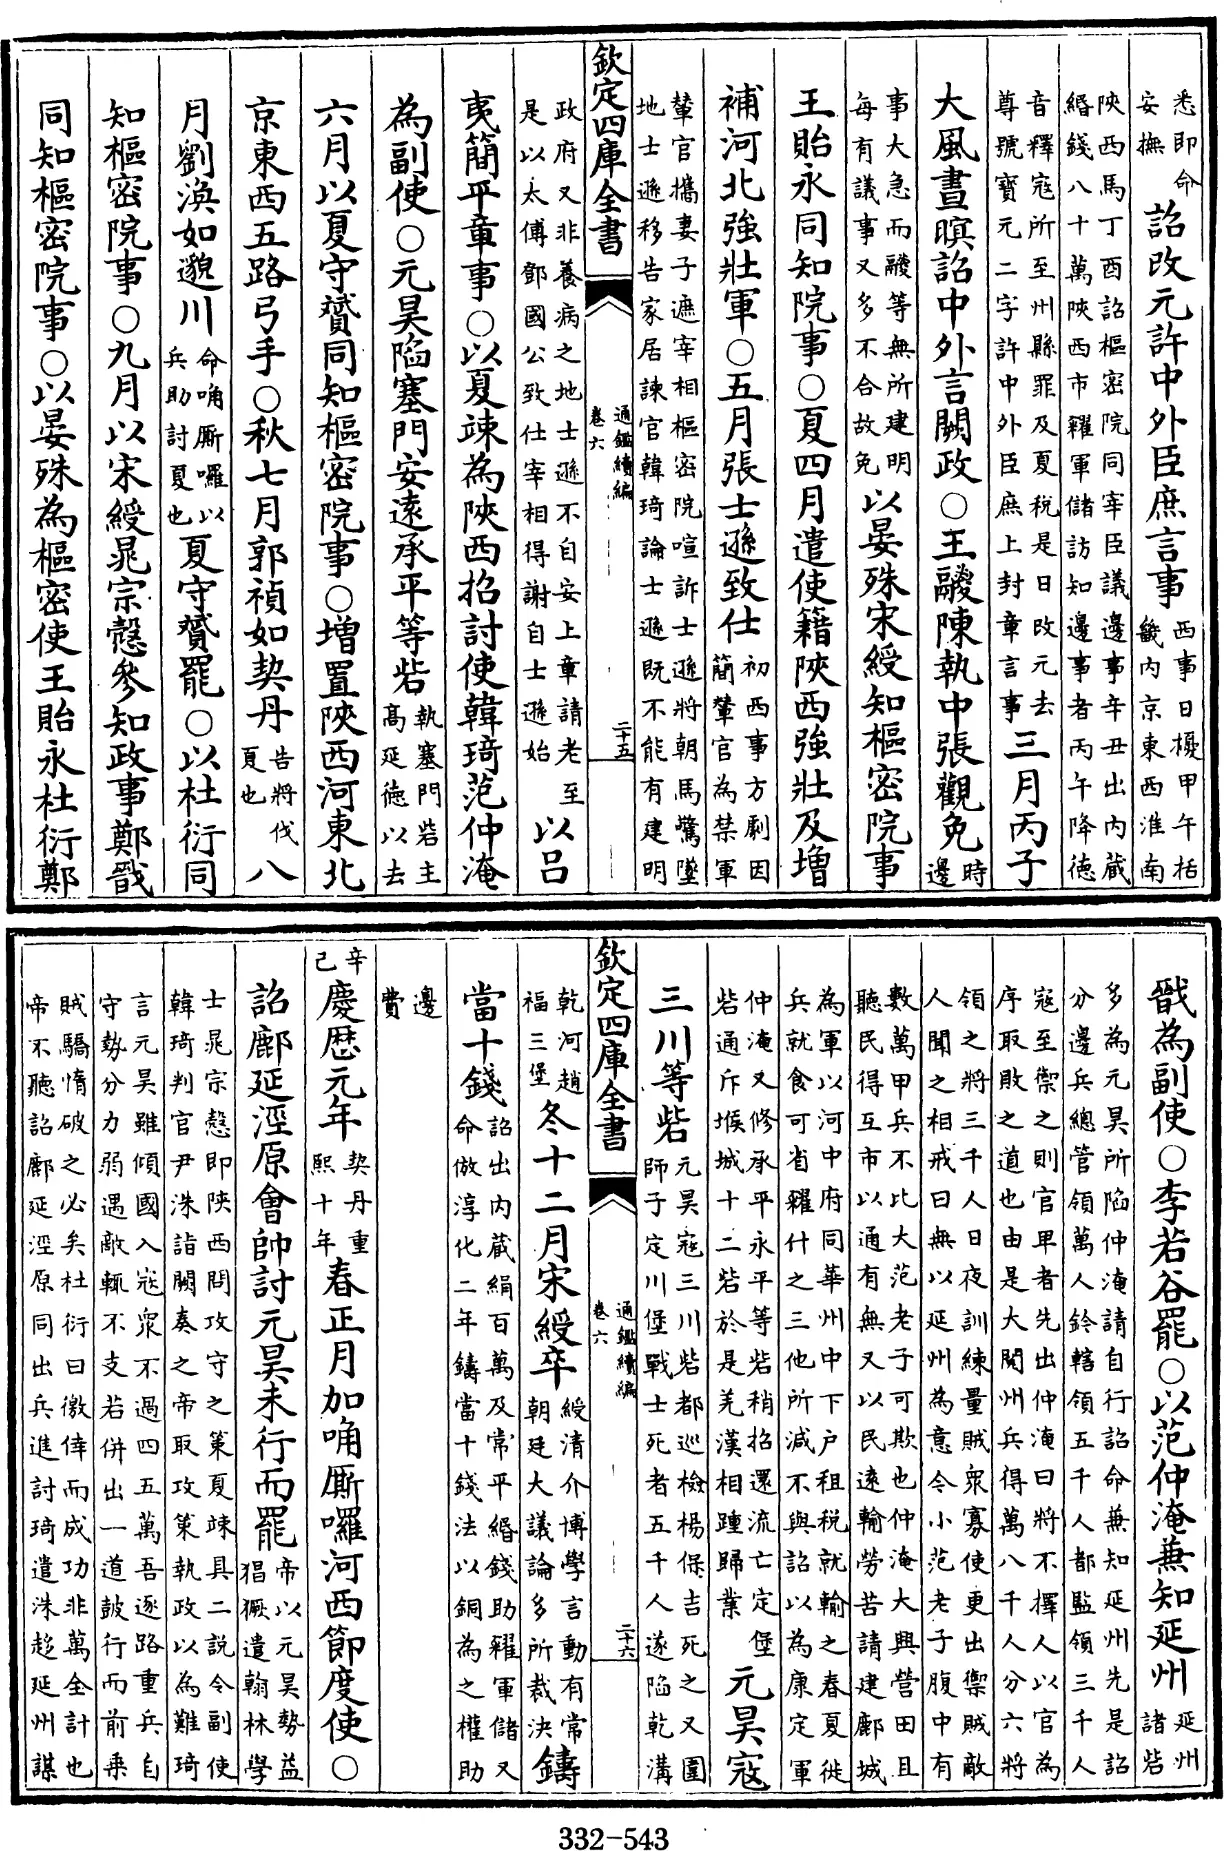 悉即命安撫詔改元許中外臣庶言事西事日櫌甲午括畿內京東西淮南
陜西馬丁酉詔樞密院同宰臣議邊事辛丑出內藏緡錢八十萬陜西市糴軍儲訪知邊事者丙午降德
音釋寇所至州縣罪及夏稅是日改元去尊號寶元二字許中外臣庶上封章言事三月丙子
大風晝暝詔中外言闕政○王鬷陳執中張觀免時邊
事大急而鬷等無所建明每有議事又多不合故免以晏殊宋綬知樞密院事
王貽永同知院事○夏四月遣使籍陜西強壯及增
補河北強壯軍○五月張士遜致仕初西事方劇因簡輦官為禁軍
輦官攜妻子遮宰相樞密院喧訴士遜將朝馬驚墜地士遜移告家居諫官韓琦論士遜既不能有建明
欽定四庫全書 通鑑續編卷六 二十五
政府又非養病之地士遜不自安上章請老至是以太傅鄧國公致仕宰相得謝自士遜始以呂
夷簡平章事○以夏竦為陜西招討使韓琦范仲淹
為副使○元昊陷塞門安遠承平等砦執塞門砦主高延德以去
六月以夏守贇同知樞密院事○增置陜西河東北
京東西五路弓手○秋七月郭禎如契丹告將伐夏也八
月劉渙如邈川命唃厮囉以兵助討夏也夏守贇罷○以杜衍同
知樞密院事○九月以宋綬晁宗慤參知政事鄭戩
同知樞密院事○以晏殊為樞密使王貽永杜衍鄭
戩為副使○李若谷罷○以范仲淹兼知延州延州諸砦
多為元昊所陷仲淹請自行詔命兼知延州先是詔分邊兵總管領萬人鈐轄領五千人都監領三千人
寇至禦之則官卑者先出仲淹曰將不擇人以官為序取敗之道也由是大閱州兵得萬八千人分六將
領之將三千人日夜訓練量賊眾寡使更出禦賊敵人聞之相戒曰無以延州為意今小范老子腹中有
數萬甲兵不比大范老子可欺也仲淹大興營田且聽民得互市以通有無又以民遠輸勞苦請建鄜城
為軍以河中府同華州中下户租稅就輸之春夏徙兵就食可省糴什之三他所減不與詔以為康定軍
仲淹又修承平永平等砦稍招還流亡定堡砦通斥堠城十二砦於是羌漢相踵歸業元昊寇
三川等砦元昊寇三川砦都巡檢楊保吉死之又圍師子定川堡戰士死者五千人遂陷乾溝
欽定四庫全書 通鑑續編卷六 二十六
乾河趙福三堡冬十二月宋綬卒綬清介博學言動有常朝廷大議論多所裁決鑄
當十錢詔出內藏絹百萬及常平緡錢助糴軍儲又命倣淳化二年鑄當十錢法以銅為之權助
邊費
辛巳慶歷元年契丹重熙十年春正月加唃厮囉河西節度使○
詔鄜延涇原會帥討元昊未行而罷帝以元昊勢益猖獗遣翰林學
士晁宗慤即陜西問攻守之策夏竦具二說令副使韓琦判官尹洙詣闕奏之帝取攻策執政以為難琦
言元昊雖傾國入寇眾不過四五萬吾逐路重兵自守勢分力弱遇敵輒不支若併出一道鼓行而前乘
賊驕惰破之必矣杜衍曰徼倖而成功非萬全計也帝不聽詔鄜延涇原同出兵進討琦遣洙趍延州謀
332-543